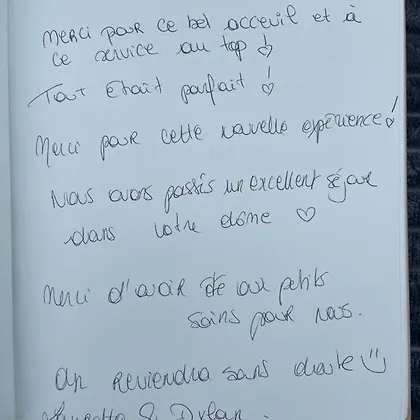 Merci pour ce bel acceuil et à
ce service au top !
Tout était parfait !
Merci pour cette nouvelle expérience !
Nous avons passés un excellent séjour
dans votre dôme ♡
Merci d'avoir été aux petits
soins pour nous.
On reviendra sans doute ☺
& Dylan.